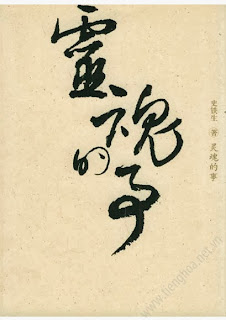 靈魂的事
史铁生 著 灵魂的事
www.tienghoa.net.vn